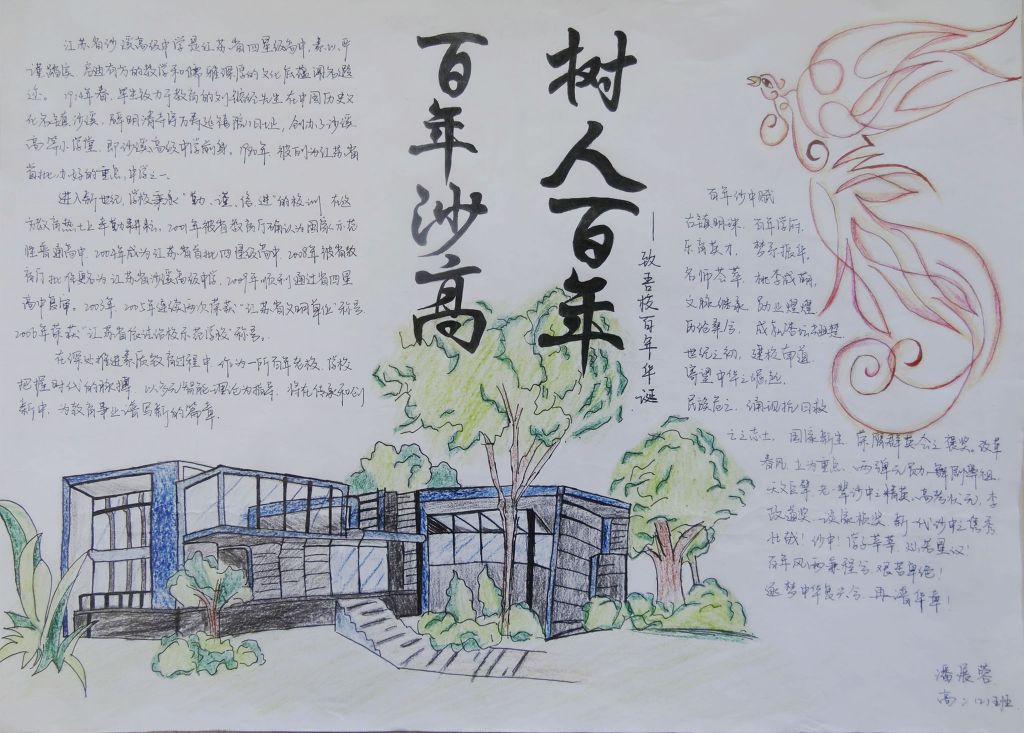 树人百年
百年沙高
——致吾校百年华诞
江苏省沙溪高级中学是江苏省四星级高中,素以严
谨踏实、启迪有方的教学和儒雅深厚的文化底蕴闻名遐
迩。1914年春,毕生致力于教育的先生在中国历史文
化名镇沙溪,辟明清寺旧址,创办了沙溪
高等小学堂,即沙溪高级中学前身。1980年,被列为江苏省
首批办好的重点中学之一。
进入新世纪,学校秉承“勤、谨、信、进”的校训,在这
方教育热土上辛勤耕耘。2001年被省教育厅确认为国家示范
性普通高中,2004年成为江苏省首批四星级高中,2008年被省教
育厅批准更名为江苏省沙溪高级中学,2009年顺利通过省四星
高中复审。2003年、2005年连续两次荣获“江苏省文明单位”称号
2006年荣获“江苏省学校”称号。
在深处推进素质教育过程中,作为一所百年名校,学校
把握时代的脉搏,以多元智能理论为指导,将在传承和创
新中,为教育事业谱写新的篇章。
百年沙中赋
古镇明珠,百年学府,
乐育英才,梦系振华,
名师荟萃,桃李成荫,
文脉继承,勋业煌煌
世纪之初,建校南疆
寄望中华之崛起,
民族危亡,涌现抗日救
亡之志士,国家新生,荣膺群英会之褒奖。改革
春风,上为重点、两弹元勋,
天文巨擘,沙中之精英、高考状元,李
政道奖、谈家桢奖,新一代沙中之俊秀
壮哉!沙中!学子莘莘,灿若星汉!
百年风雨兼程兮,艰苦卓绝!
逐梦中华复兴兮,再谱华章!
潘展蓉
高二(2)班